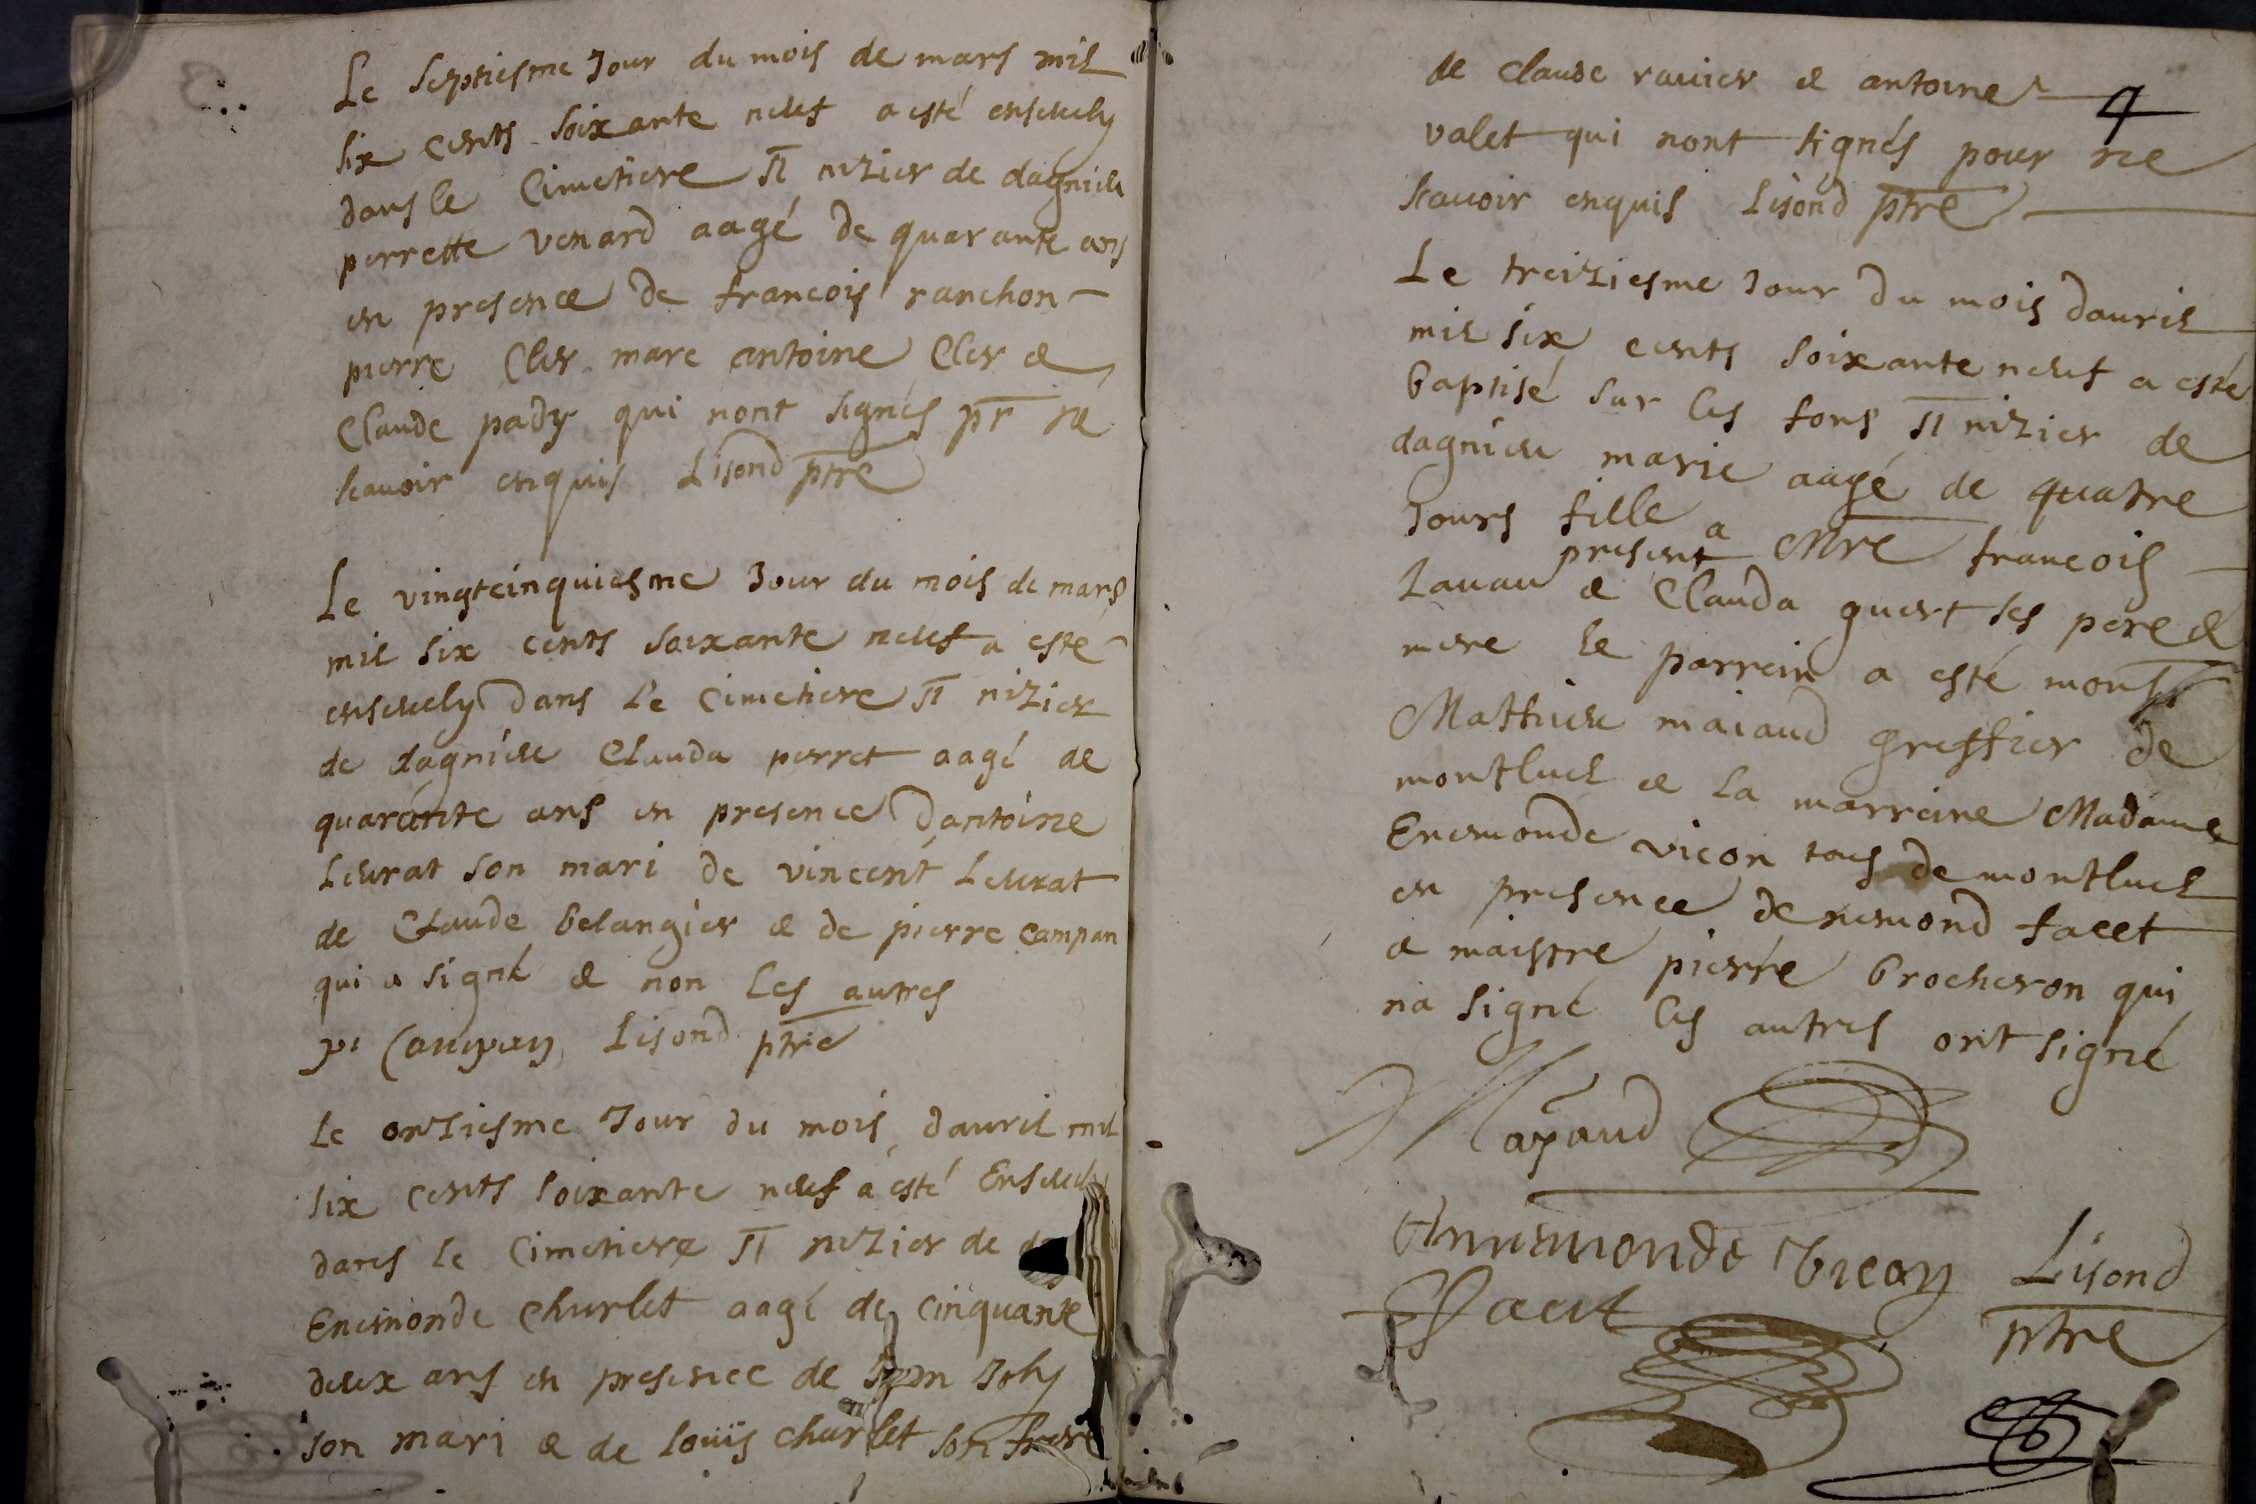 Le septiesme Jour du mois de mars mil
six cents soixante neuf a esté enseuely
dans le Cimetiere St nizier de dagnieu
perrette venard aagé de quarante ans
en presence de francois ranchon
pierre Cler marc antoine Cler &
Claude pady qui nont signés pr ne
scauoir enquis Lisond ptre
Le vingtcinquiesme Jour du mois de mars
mil six cents soixante neuf a esté
enseuely dans le Cimetiere St nizier
de dagnieu Clauda perret aagé de
quarante ans en presence dantoine
Leurat son mari de vincent Leurat
de Claude belangier & de pierre campan
qui a signé & non les autres
pr Campan Lisond ptre
Le onziesme Jour du mois dauril mil
six cents soixante neuf a esté Enseuely
dans le Cimetiere St nizier de
Enemonde Churlet aagé de cinquante
deux ans en presence de Joly
son mari & de louïs churlet son frere
4
de claude rauier & antoine
valet qui nont signés pour ne
scauoir enquis Lisond ptre
Le treiziesme Jour du mois dauril
mil six cents soixante neuf a esté
baptisé sur les fons St nizier de
dagnieu marie aagé de quatre
Jours fille a Mre francois
Lauau present & Clauda guert ses pere &
mere le parrein a esté monsr
Matthieu maiaud greffier de
montluel & la marreine Madame
Enemonde vicon tous de montluel
en presence denemond facet
& maistre pierre brocheron qui
na signé les autres ont signé
Mayaud
Annemonde Vicon Lisond
facet ptre